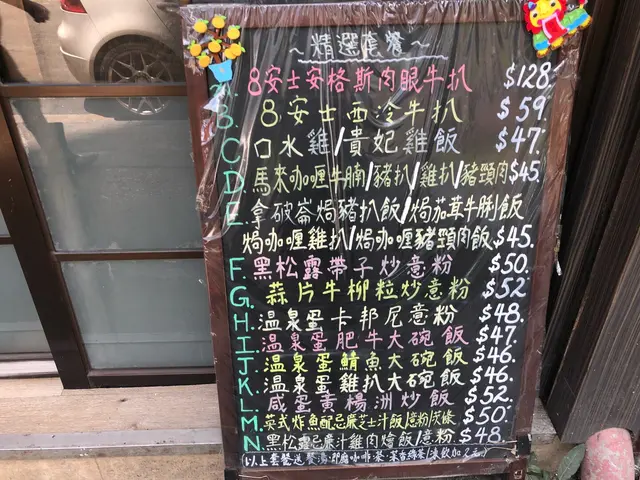 ~精選套餐~
A. 8安士安格斯肉眼牛扒 $128.
B. 8安士西冷牛扒 $59.
C 口水雞/貴妃雞飯 $47.
D. 馬來咖喱牛腩/豬扒/雞扒/豬頸肉 $45.
E. 拿破崙焗豬扒飯/焗茄茸牛脷飯
焗咖喱雞扒/焗咖喱豬頸肉飯 $45.
F. 黑松露帶子炒意粉 $50.
G. 蒜片牛柳粒炒意粉 $52
H. 温泉蛋卡邦尼意粉 $48.
I. 温泉蛋肥牛大碗飯 $47.
J. 温泉蛋鯖魚大碗飯 $46.
K. 温泉蛋雞扒大碗飯 $46.
L. 咸蛋黄楊洲炒飯 $52.
M. 英式炸魚配忌廉芝士汁飯/意粉/炆條 $50.
N 黑松露忌廉汁雞肉燴飯/意粉. $48.
以上套餐送餐湯.即磨咖啡.茶.